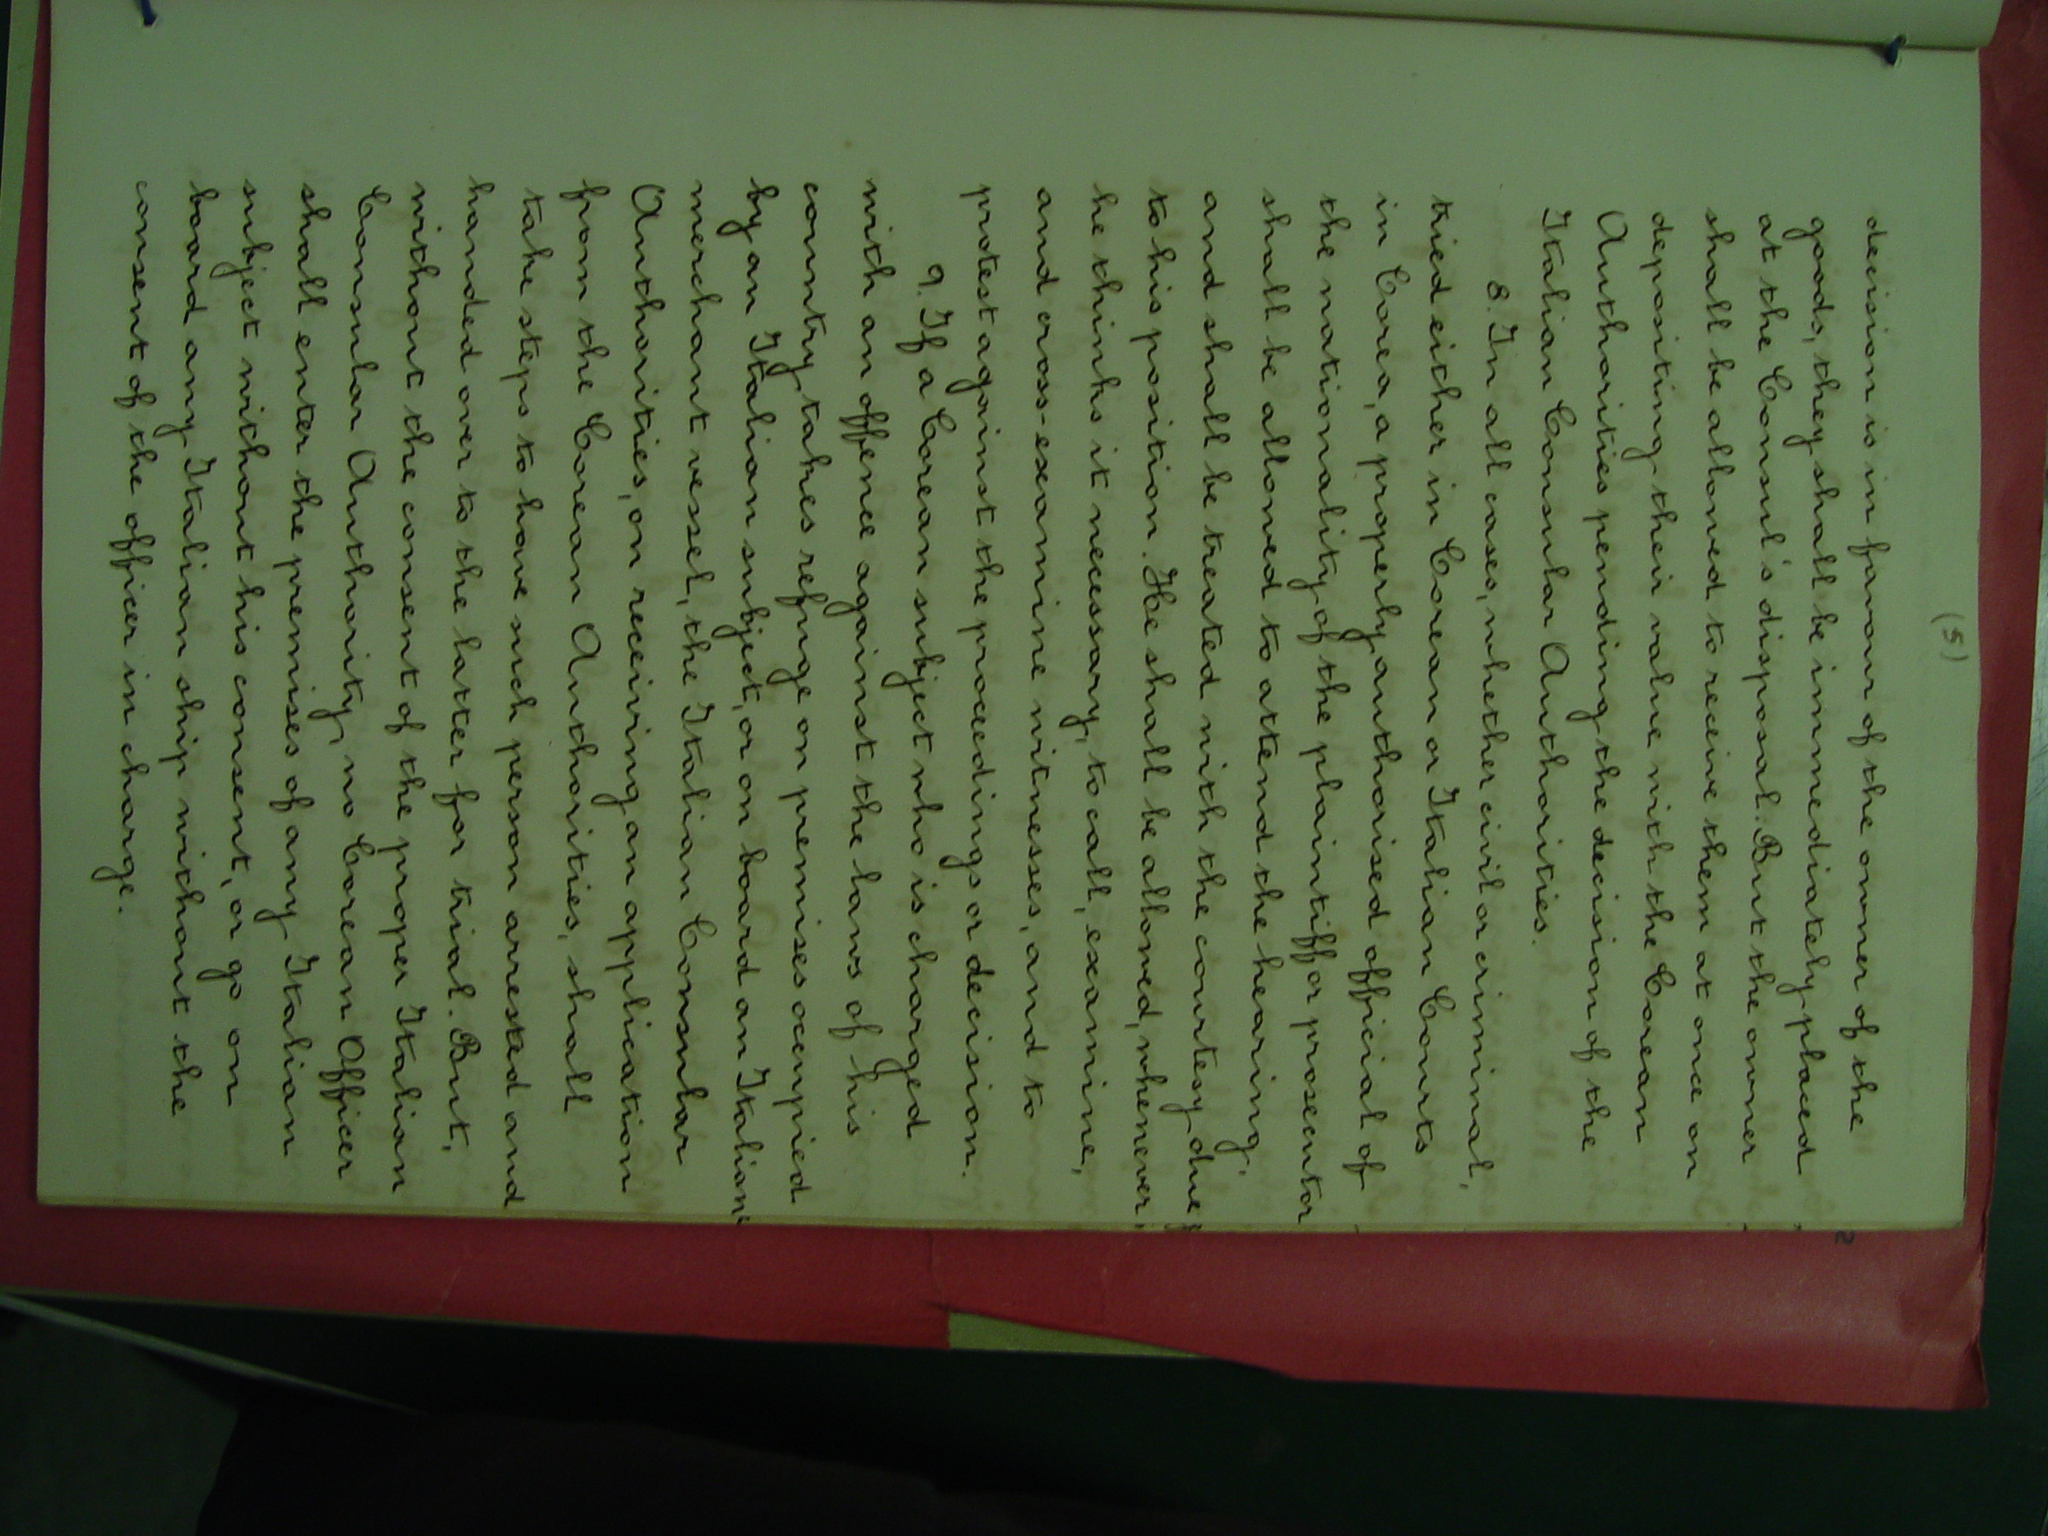 (5)
decision is in favour of the owner of the
goods, they shall be immediately placed
at the Consul's disposal. But the owner
shall be allowed to receive them at once on
depositing their value with the Corean
Authorities pending the decision of the
Italian Consular Authorities.
8. In all cases, whether civil or criminal,
tried either in Corean or Italian Courts
in Corea, a properly authorised official of
the nationality of the plaintiff or prosecutor
shall be allowed to attend the hearing,
and shall be treated with the courtesy due
to his position. He shall be allowed, whenever
he thinks it necessary, to call, examine,
and cross-examine witnesses, and to
protest against the proceedings or decision.
9. If a Corean subject who is charged
with an offence against the laws of his
country, takes refuge on premises occupied
by an Italian subject, or on board an Italian
merchant vessel, the Italian Consular
Authorities, on receiving an application
from the Corean Authorities, shall
take steps to have such person arrested and
handed over to the latter for trial. But,
without the consent of the proper Italian
Consular Authority, no Corean Officer
shall enter the premises of any Italian
subject without his consent, or go on
board any Italian ship without the
consent of the officer in charge.